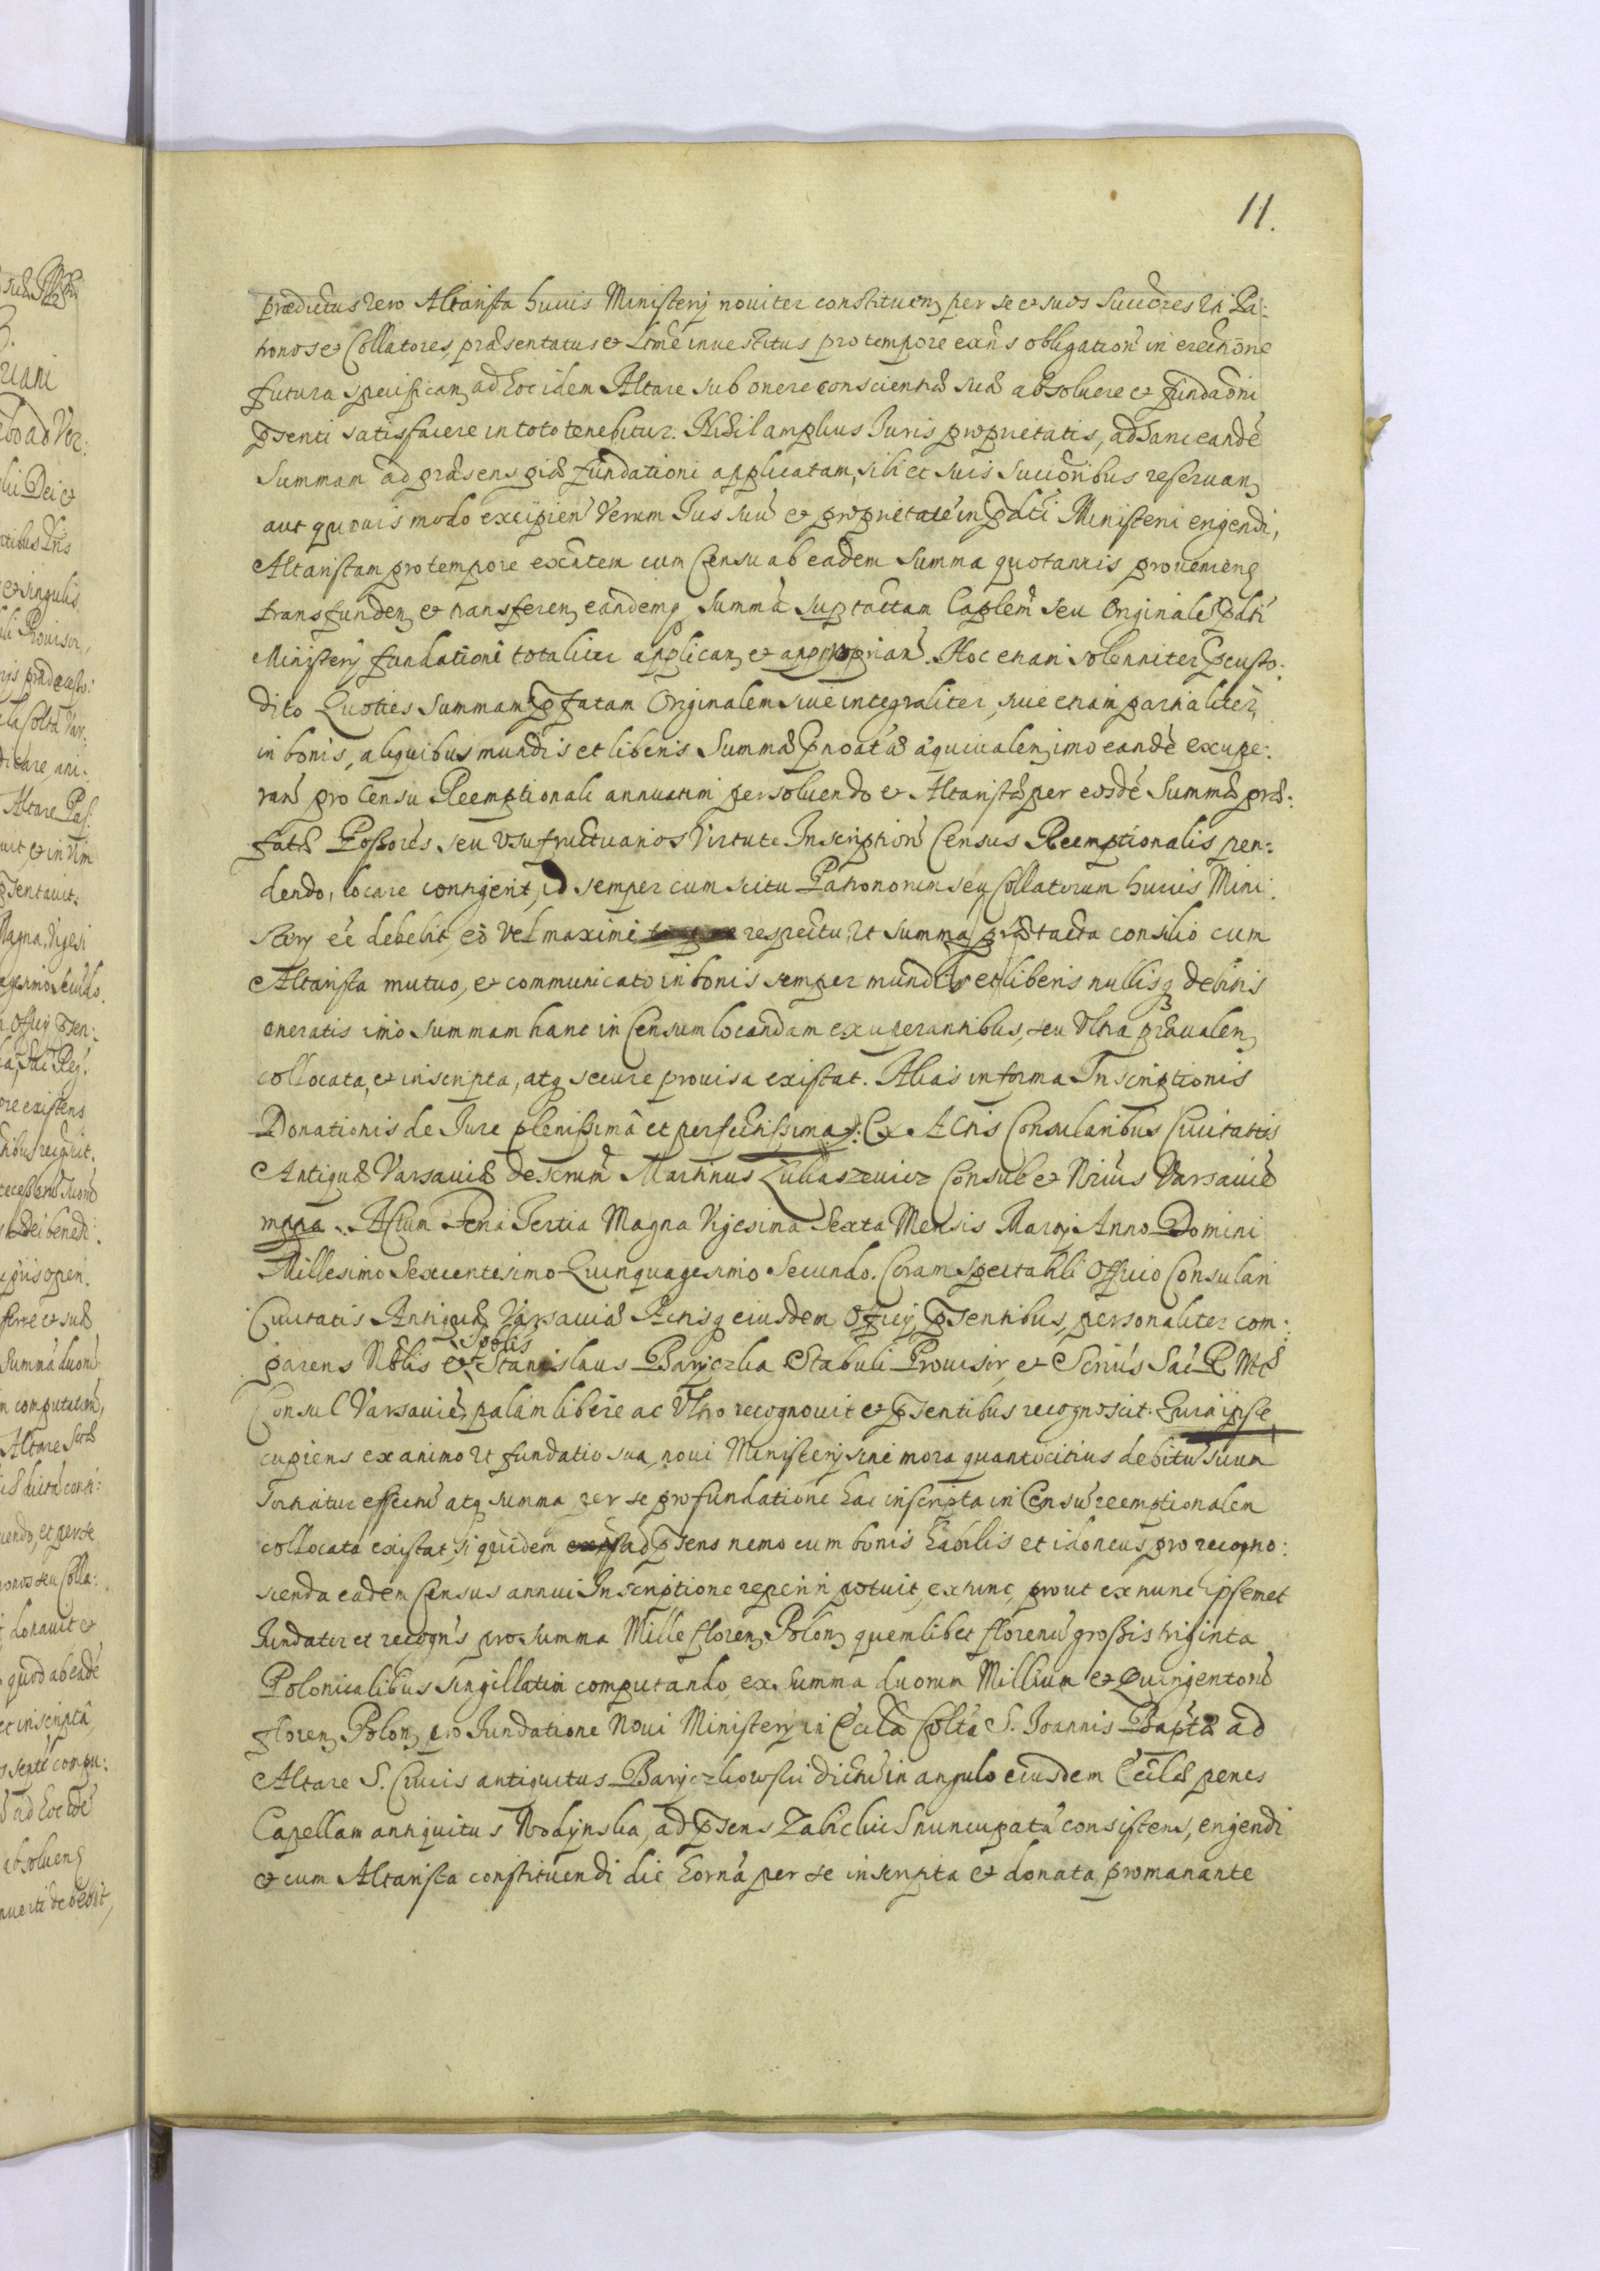 11.
prædictus vero Altarista huius Ministerÿ noviter constituen per se et suos Succõres Vti Pa:
tronos et Collatores præsentatus et Ltmẽ investitus pro tempore exñs obligation̄ in erectione
futura specifican ad hoc idem Altare sub onere conscientiæ suæ absolvere et fundãoni
pñsenti satisfacere in toto tenebitur. Nihil amplius Juris proprietatis, ad hanc eandẽ
Summam ad præsens piæ fundationi applicatam, sibi et suis Succõribus reservan
aut quovis modo excipien Verum Jus suũ et proprietatẽ in pdcti Ministerii erigendi,
Altaristam pro tempore exñtem cum Censu ab eadem Summa quotannis provenieñ
transfunden et transferen eandemq Summã suptactam Caplem̃ seu Originalẽ pdcti
Ministerÿ fundationi totaliter applican et appropriañ. Hoc etiam solenniter pcusto:
dito Quoties Summam pfatam Originalem sive integraliter, sive etiam partialiter,
in bonis, aliquibus mundis et liberis Summæ pnoatæ æquivalen, imo eandẽ exupe:
rañ pro Censu Reemptionali annuatim persolvendo et Altaristæ per eosdẽ Summæ præ:
fatæ Possorẽs seu Vsufructuarios Virtute Inscription̄ Census Reemptionalis pen:
dendo, locare contigerit, id semper cum scitu Patronorum seu Collatorum huius Mini:
sterÿ eẽ debebit, eo vel maximè respectu, Vt Summa prætacta consilio cum
Altarista mutuo, et communicato in bonis semper mundis et liberis nullisq debitis
oneratis imo Summam hanc in Censum locandam exuperantibus, seu Vltra prævalen
collocata, et inscripta, atq secure provisa existat. Alias in forma Inscriptionis
Donationis de Jure plenissimâ et perfectissima. Ex Actis Consularibus Civitatis
Antiquæ Varsaviæ descrum̃ Martinus Łukaszewicz Consul et Nrius Varsavieñ
mppa. Actum Feria Tertia Magna Vigesima Sexta Mensis Martÿ Anno Domini
Millesimo Sexcentesimo Quinquagesimo Secundo. Coram Spectabili Officio Consulari
Civitatis Antiquæ Varsaviæ Actisq eiusdem Officÿ pñsentibus, personaliter com:
parens Nblis et Spblis Stanislaus Baryczka Stabuli Provisor, et Scrius Sac R. Mtis
Consul Varsavieñ palam libere ac Vltro recognovit et pñsentibus recognoscit. Quia ipse
cupiens ex animo Vt fundatio sua, novi Ministerÿ sine mora quantocitius debitũ suum
sortiatur effectũ atq summa per se pro fundatione hac inscripta in Censũ reemptionalem
collocata existat, siquidem ad pñsens nemo cum bonis habilis et idoneus pro recogno:
scenda eadem Census annui Inscriptione reperiri potuit, extunc, prout ex nunc ipsemet
fundator et recogns pro summa Mille floren Polon quemlibet florenũ grossis triginta
Polonicalibus singillatim computando, ex Summa duorum Millium et Quingentorũ
floren Polon pro fundatione Novi Ministerÿ in Ecclã Coltã S. Joannis Baptæ ad
Altare S. Crucis antiquitus Baryczkowski dictũ in angulo eiusdem Ecclæ penes
Capellam antiquitus Wodynska, ad pñsens Zabickiis nuncupatã consistens, erigendi
et cum Altarista constituendi die hornã per se inscripta et donata promanante